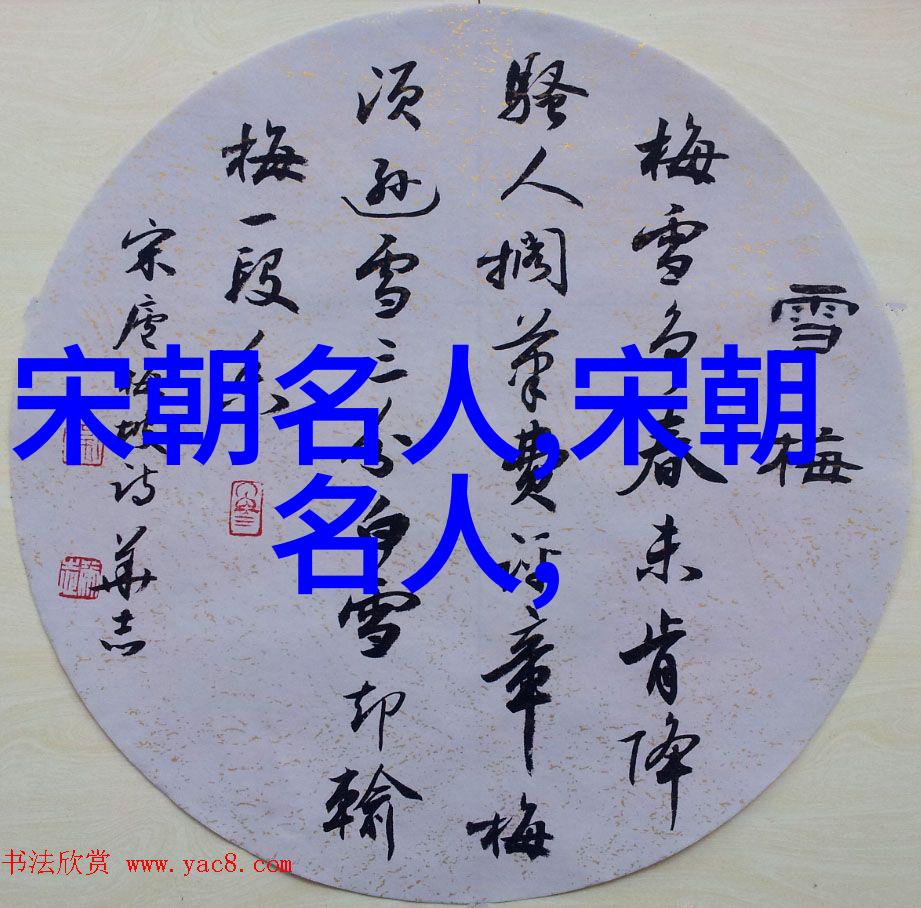 雪梅
梅雪争春未肯降
骚人搁筆费评章梅
须逊雪三分白雪却输
梅一段香
宋卢梅坡诗 華志
宋朝名人,宋朝
名人,
书法欣赏 www.yac8.com